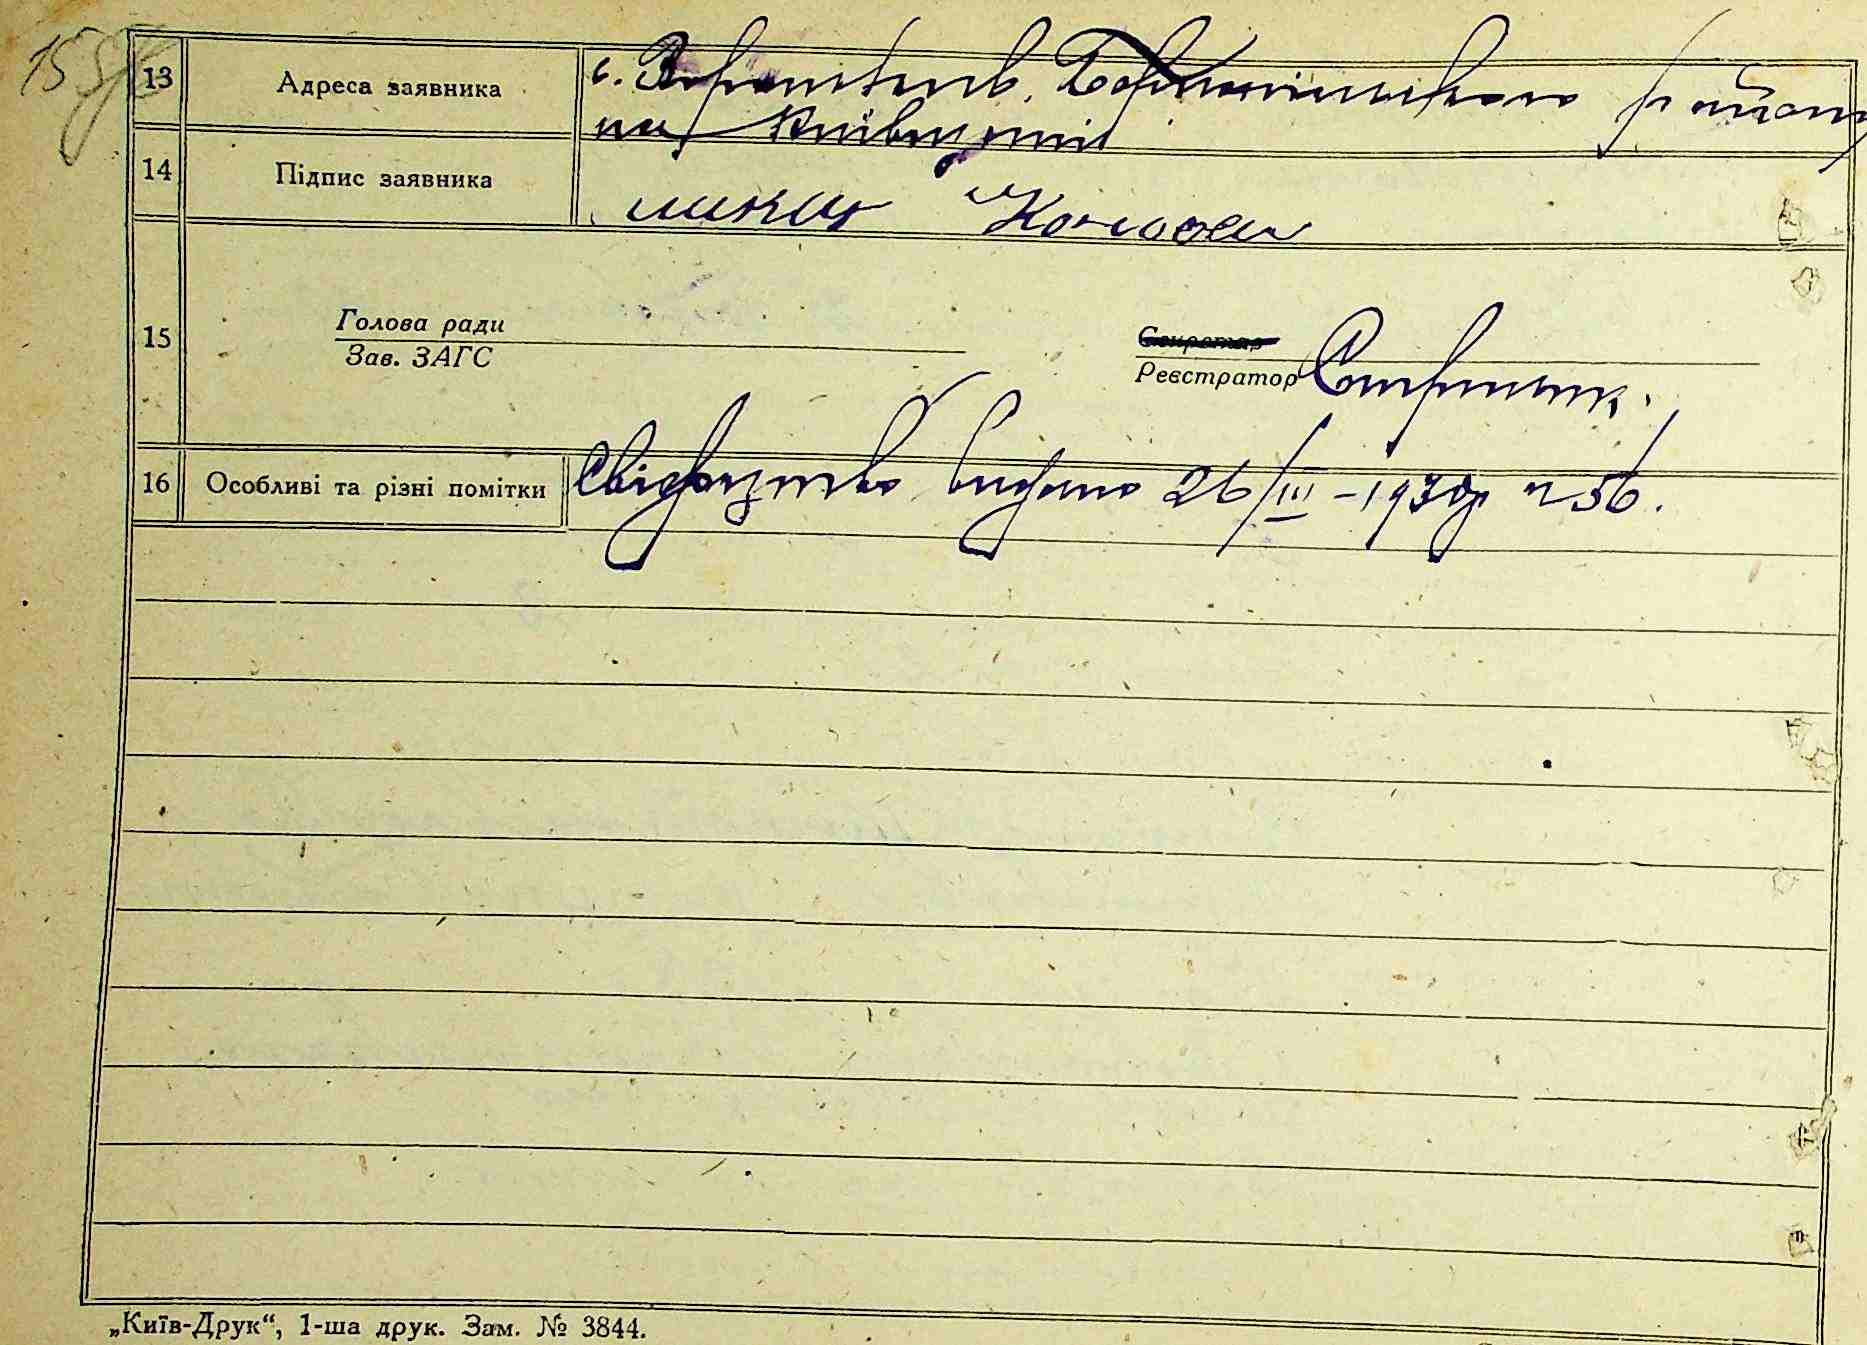 13 Адреса заявника с. Бориспільського району
на Київщині
14 Підпис заявника
15 Голова ради Секретар
Зав. ЗАГС Реєстратор
16 Особливі та різні помітки Свідоцтво видано 26/III – 193 р № 56.
„Київ-Друк“, 1-ша друк. Зам. № 3844.